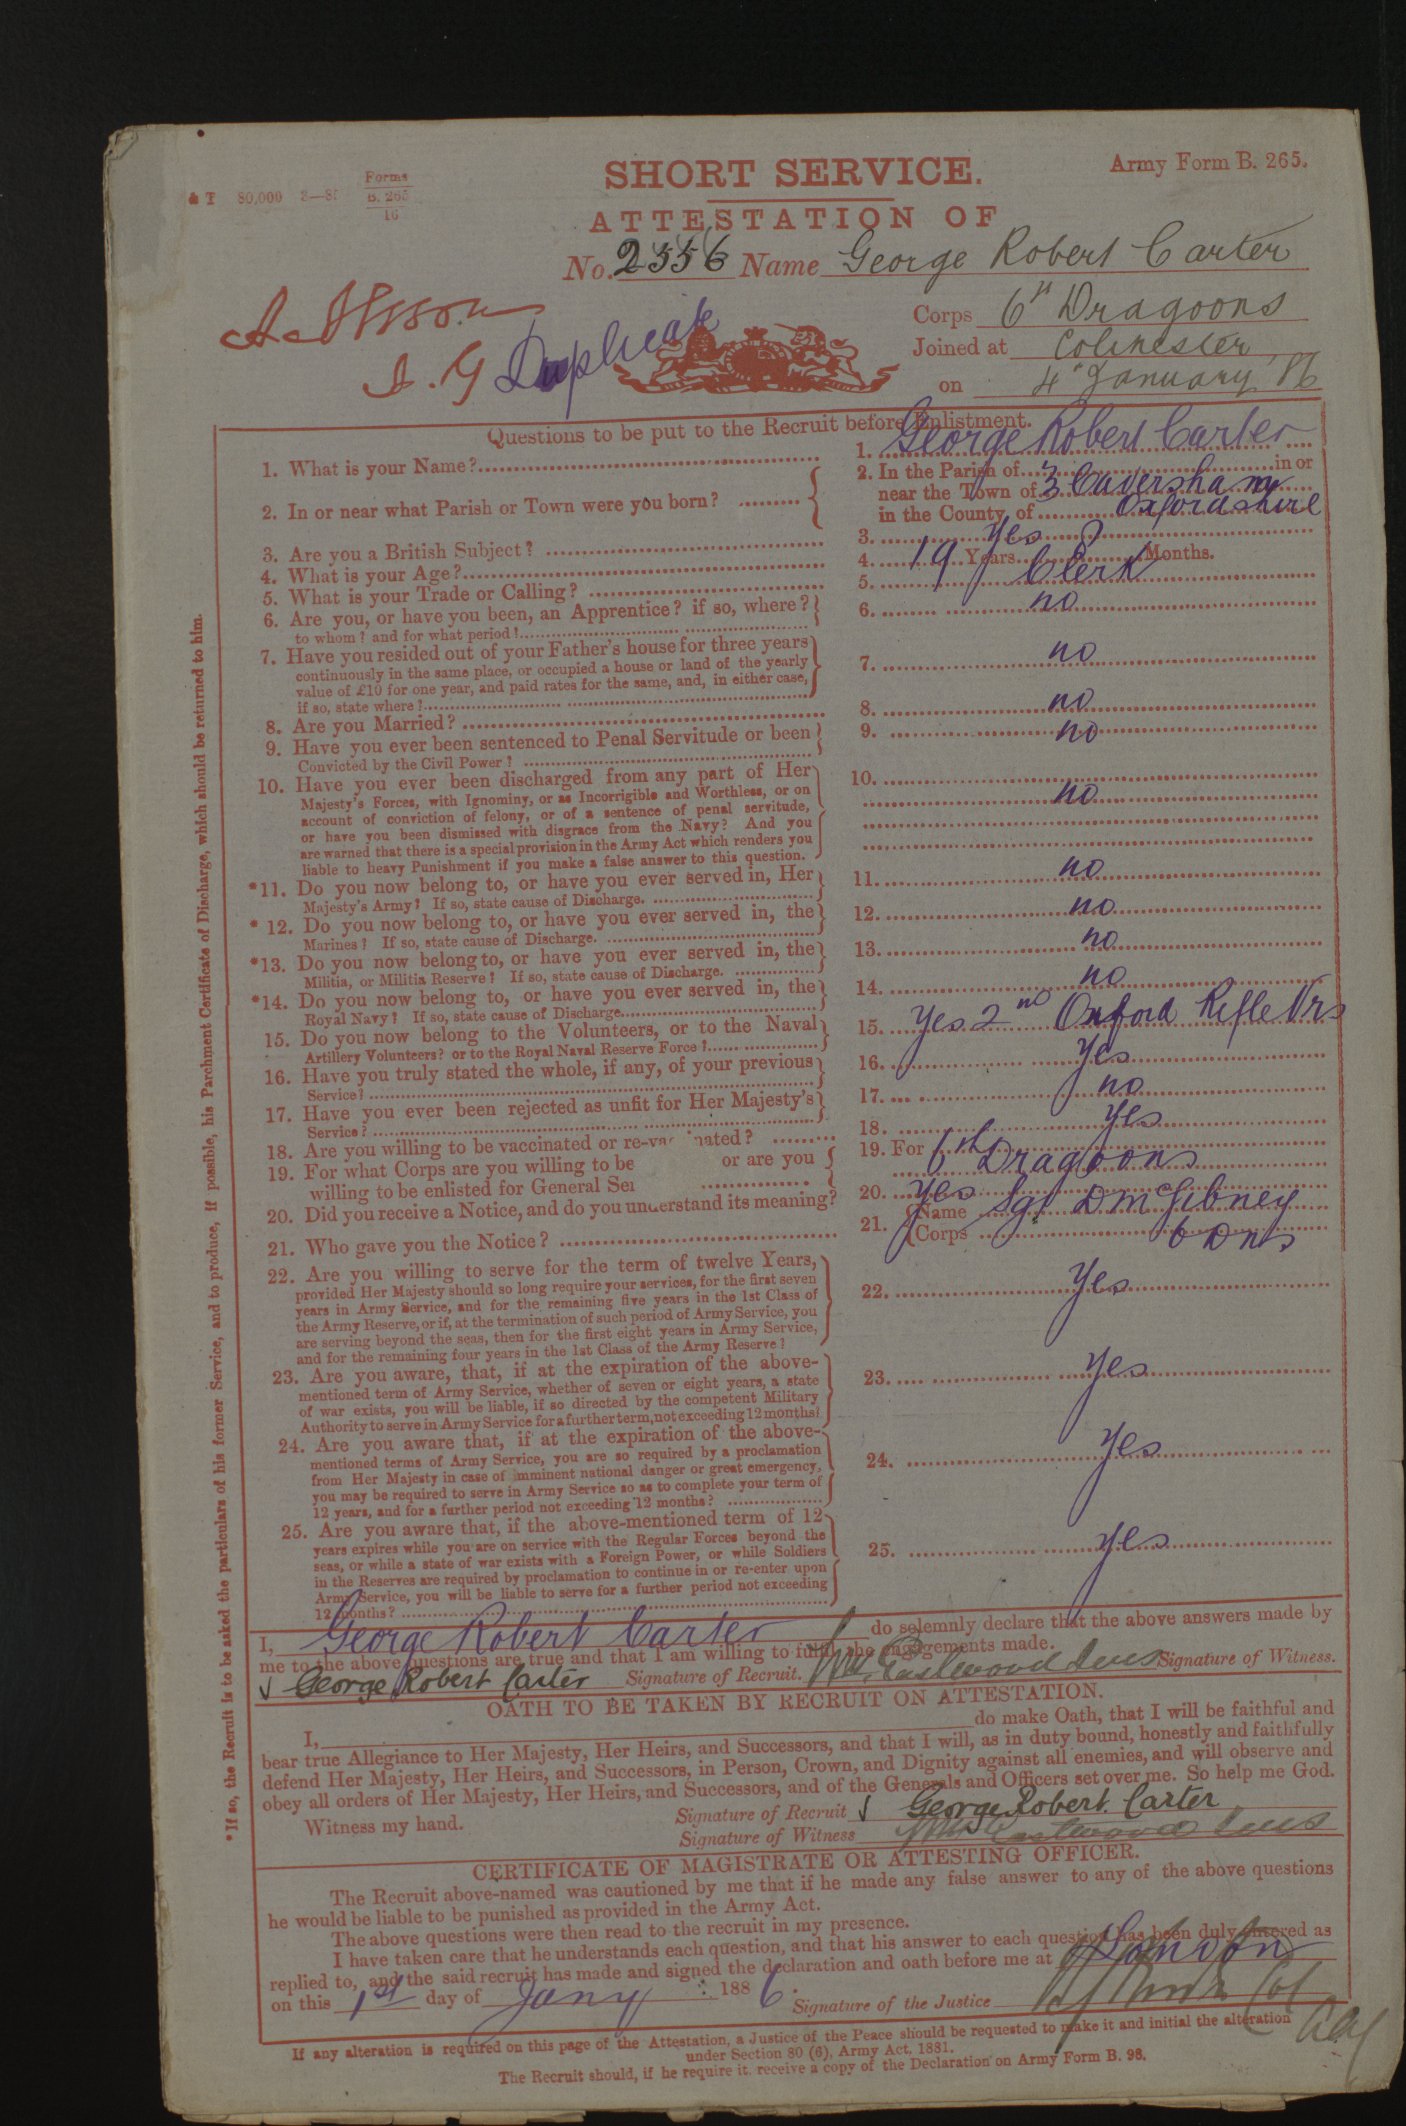 & T 80,000 3—85 Forms
B. 265
16
SHORT SERVICE.
Army Form B. 265.
ATTESTATION OF
No. 2556 Name George Robert Carter
Corps 6th Dragoons
Joined at Colchester
on 4th January 86
Duplicate
Questions to be put to the Recruit before Enlistment.
1. What is your Name? 1. George Robert Carter
2. In or near what Parish or Town were you born? 2. In the Parish of in or
near the Town of Caversham
in the County of Oxfordshire
3. Are you a British Subject? 3. Yes
4. What is your Age? 4. 19 Years Months.
5. What is your Trade or Calling? 5. Clerk
6. Are you, or have you been, an Apprentice? if so, where? 6. no
to whom? and for what period?
7. Have you resided out of your Father's house for three years 7. no
continuously in the same place, or occupied a house or land of the yearly
value of £10 for one year, and paid rates for the same, and, in either case,
if so, state where?
8. Are you Married? 8. no
9. Have you ever been sentenced to Penal Servitude or been 9. no
Convicted by the Civil Power?
10. Have you ever been discharged from any part of Her 10. no
Majesty's Forces, with Ignominy, or as Incorrigible and Worthless, or on
account of conviction of felony, or of a sentence of penal servitude,
or have you been dismissed with disgrace from the Navy? And you
are warned that there is a special provision in the Army Act which renders you
liable to heavy Punishment if you make a false answer to this question.
*11. Do you now belong to, or have you ever served in, Her 11. no
Majesty's Army? If so, state cause of Discharge.
*12. Do you now belong to, or have you ever served in, the 12. no
Marines? If so, state cause of Discharge.
*13. Do you now belong to, or have you ever served in, the 13. no
Militia, or Militia Reserve? If so, state cause of Discharge.
*14. Do you now belong to, or have you ever served in, the 14. no
Royal Navy? If so, state cause of Discharge.
15. Do you now belong to the Volunteers, or to the Naval 15. Yes 2nd Oxford Rifle Vrs
Artillery Volunteers? or to the Royal Naval Reserve Force?
16. Have you truly stated the whole, if any, of your previous 16. Yes
Service?
17. Have you ever been rejected as unfit for Her Majesty's 17. no
Service?
18. Are you willing to be vaccinated or re-vac inated? 18. Yes
19. For what Corps are you willing to be or are you 19. For 6th Dragoons
willing to be enlisted for General Ser
20. Did you receive a Notice, and do you understand its meaning? 20. Yes
21. Who gave you the Notice? 21. Name Sgt D McGibney
Corps 6 Dns
22. Are you willing to serve for the term of twelve Years, 22. Yes
provided Her Majesty should so long require your services, for the first seven
years in Army Service, and for the remaining five years in the 1st Class of
the Army Reserve, or if, at the termination of such period of Army Service, you
are serving beyond the seas, then for the first eight years in Army Service,
and for the remaining four years in the 1st Class of the Army Reserve?
23. Are you aware, that, if at the expiration of the above- 23. Yes
mentioned term of Army Service, whether of seven or eight years, a state
of war exists, you will be liable, if so directed by the competent Military
Authority to serve in Army Service for a further term, not exceeding 12 months?
24. Are you aware that, if at the expiration of the above- 24. Yes
mentioned terms of Army Service, you are so required by a proclamation
from Her Majesty in case of imminent national danger or great emergency,
you may be required to serve in Army Service so as to complete your term of
12 years, and for a further period not exceeding 12 months?
25. Are you aware that, if the above-mentioned term of 12 25. Yes
years expires while you are on service with the Regular Forces beyond the
seas, or while a state of war exists with a Foreign Power, or while Soldiers
in the Reserves are required by proclamation to continue in or re-enter upon
Army Service, you will be liable to serve for a further period not exceeding
12 months?
I, George Robert Carter do solemnly declare that the above answers made by
me to the above questions are true and that I am willing to fulfil the engagements made.
George Robert Carter Signature of Recruit. Wm Eastwood Signature of Witness.
OATH TO BE TAKEN BY RECRUIT ON ATTESTATION.
I, do make Oath, that I will be faithful and
bear true Allegiance to Her Majesty, Her Heirs, and Successors, and that I will, as in duty bound, honestly and faithfully
defend Her Majesty, Her Heirs, and Successors, in Person, Crown, and Dignity against all enemies, and will observe and
obey all orders of Her Majesty, Her Heirs, and Successors, and of the Generals and Officers set over me. So help me God.
Witness my hand. Signature of Recruit George Robert Carter
Signature of Witness Wm Eastwood
CERTIFICATE OF MAGISTRATE OR ATTESTING OFFICER.
The Recruit above-named was cautioned by me that if he made any false answer to any of the above questions
he would be liable to be punished as provided in the Army Act.
The above questions were then read to the recruit in my presence.
I have taken care that he understands each question, and that his answer to each question has been duly entered as
replied to, and the said recruit has made and signed the declaration and oath before me at London
on this 1st day of Jany 1886.
Signature of the Justice
If any alteration is required on this page of the Attestation, a Justice of the Peace should be requested to make it and initial the alteration
under Section 80 (6), Army Act, 1881.
The Recruit should, if he require it, receive a copy of the Declaration on Army Form B. 98.
*If so, the Recruit is to be asked the particulars of his former Service, and to produce, if possible, his Parchment Certificate of Discharge, which should be returned to him.